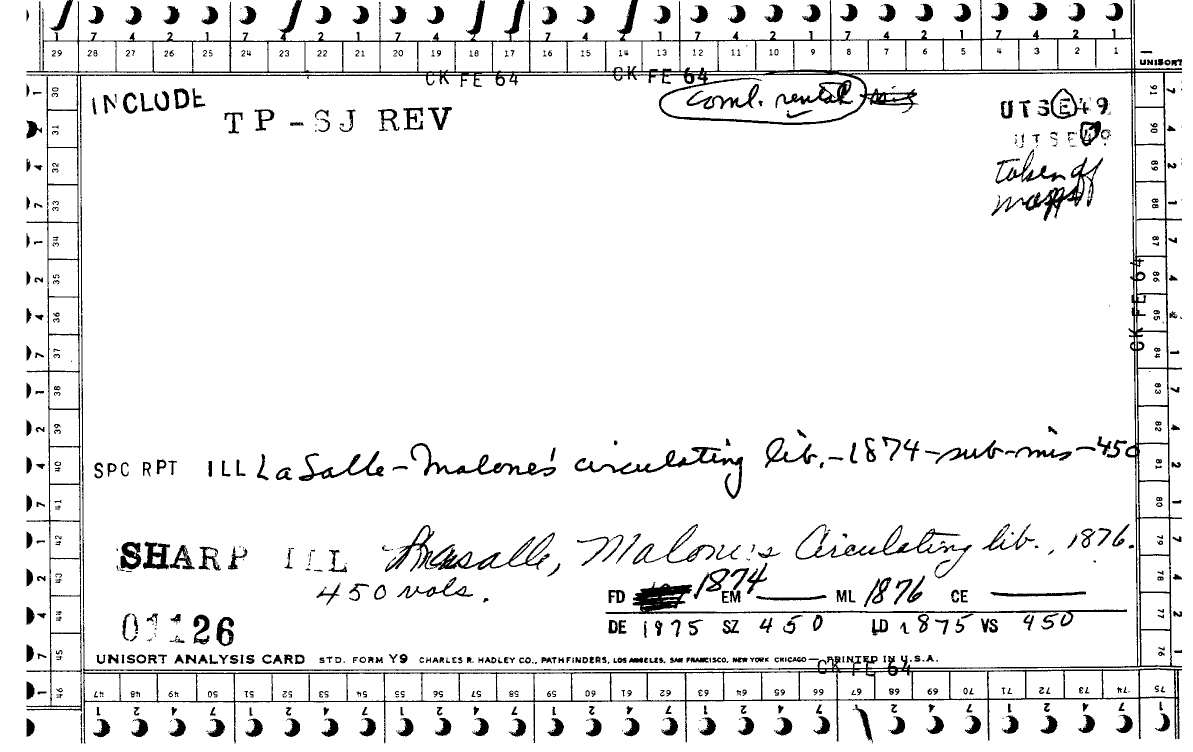 7 4 2 1 7 4 2 1 7 4 2 1 7 4 2 1 7 4 2 1 7 4 2 1 7 4 2 1
29 28 27 26 25 24 23 22 21 20 19 18 17 16 15 14 13 12 11 10 9 8 7 6 5 4 3 2 1
UNISORT
CK FE 64 CK FE 64
INCLUDE
TP-SJ REV
coml. rental
UTSE49
UTSE49
taken off
CK FE 64
SPC RPT ILL LaSalle-Malone's circulating lib.-1874-sub-mis-450
SHARP ILL Lasalle, Malone's Circulating lib., 1876.
450 vols.
FD 1874 EM ML 1876 CE
01126
DE 1875 SZ 450 LD 1875 VS 450
UNISORT ANALYSIS CARD STD. FORM Y9 CHARLES R. HADLEY CO., PATHFINDERS, LOS ANGELES, SAN FRANCISCO, NEW YORK CHICAGO PRINTED IN U.S.A.
CK FE 64
30 31 32 33 34 35 36 37 38 39 40 41 42 43 44 45 46
91 90 89 88 87 86 85 84 83 82 81 80 79 78 77 76
47 48 49 50 51 52 53 54 55 56 57 58 59 60 61 62 63 64 65 66 67 68 69 70 71 72 73 74 75